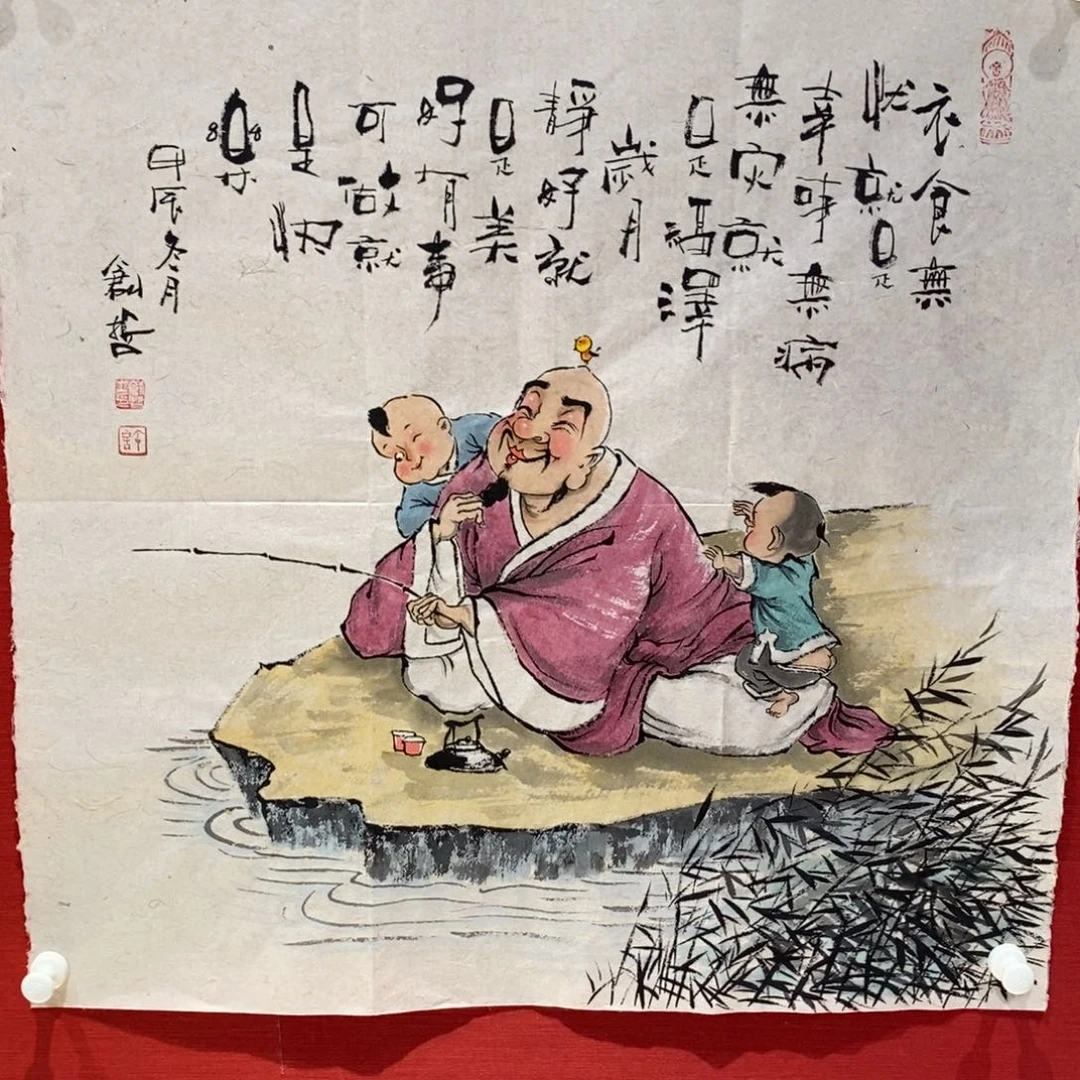 衣食無
忧就是
幸味無病
無灾就
是福澤
歲月
靜好就
是美
好有事
可做就
是快
樂
甲辰冬月